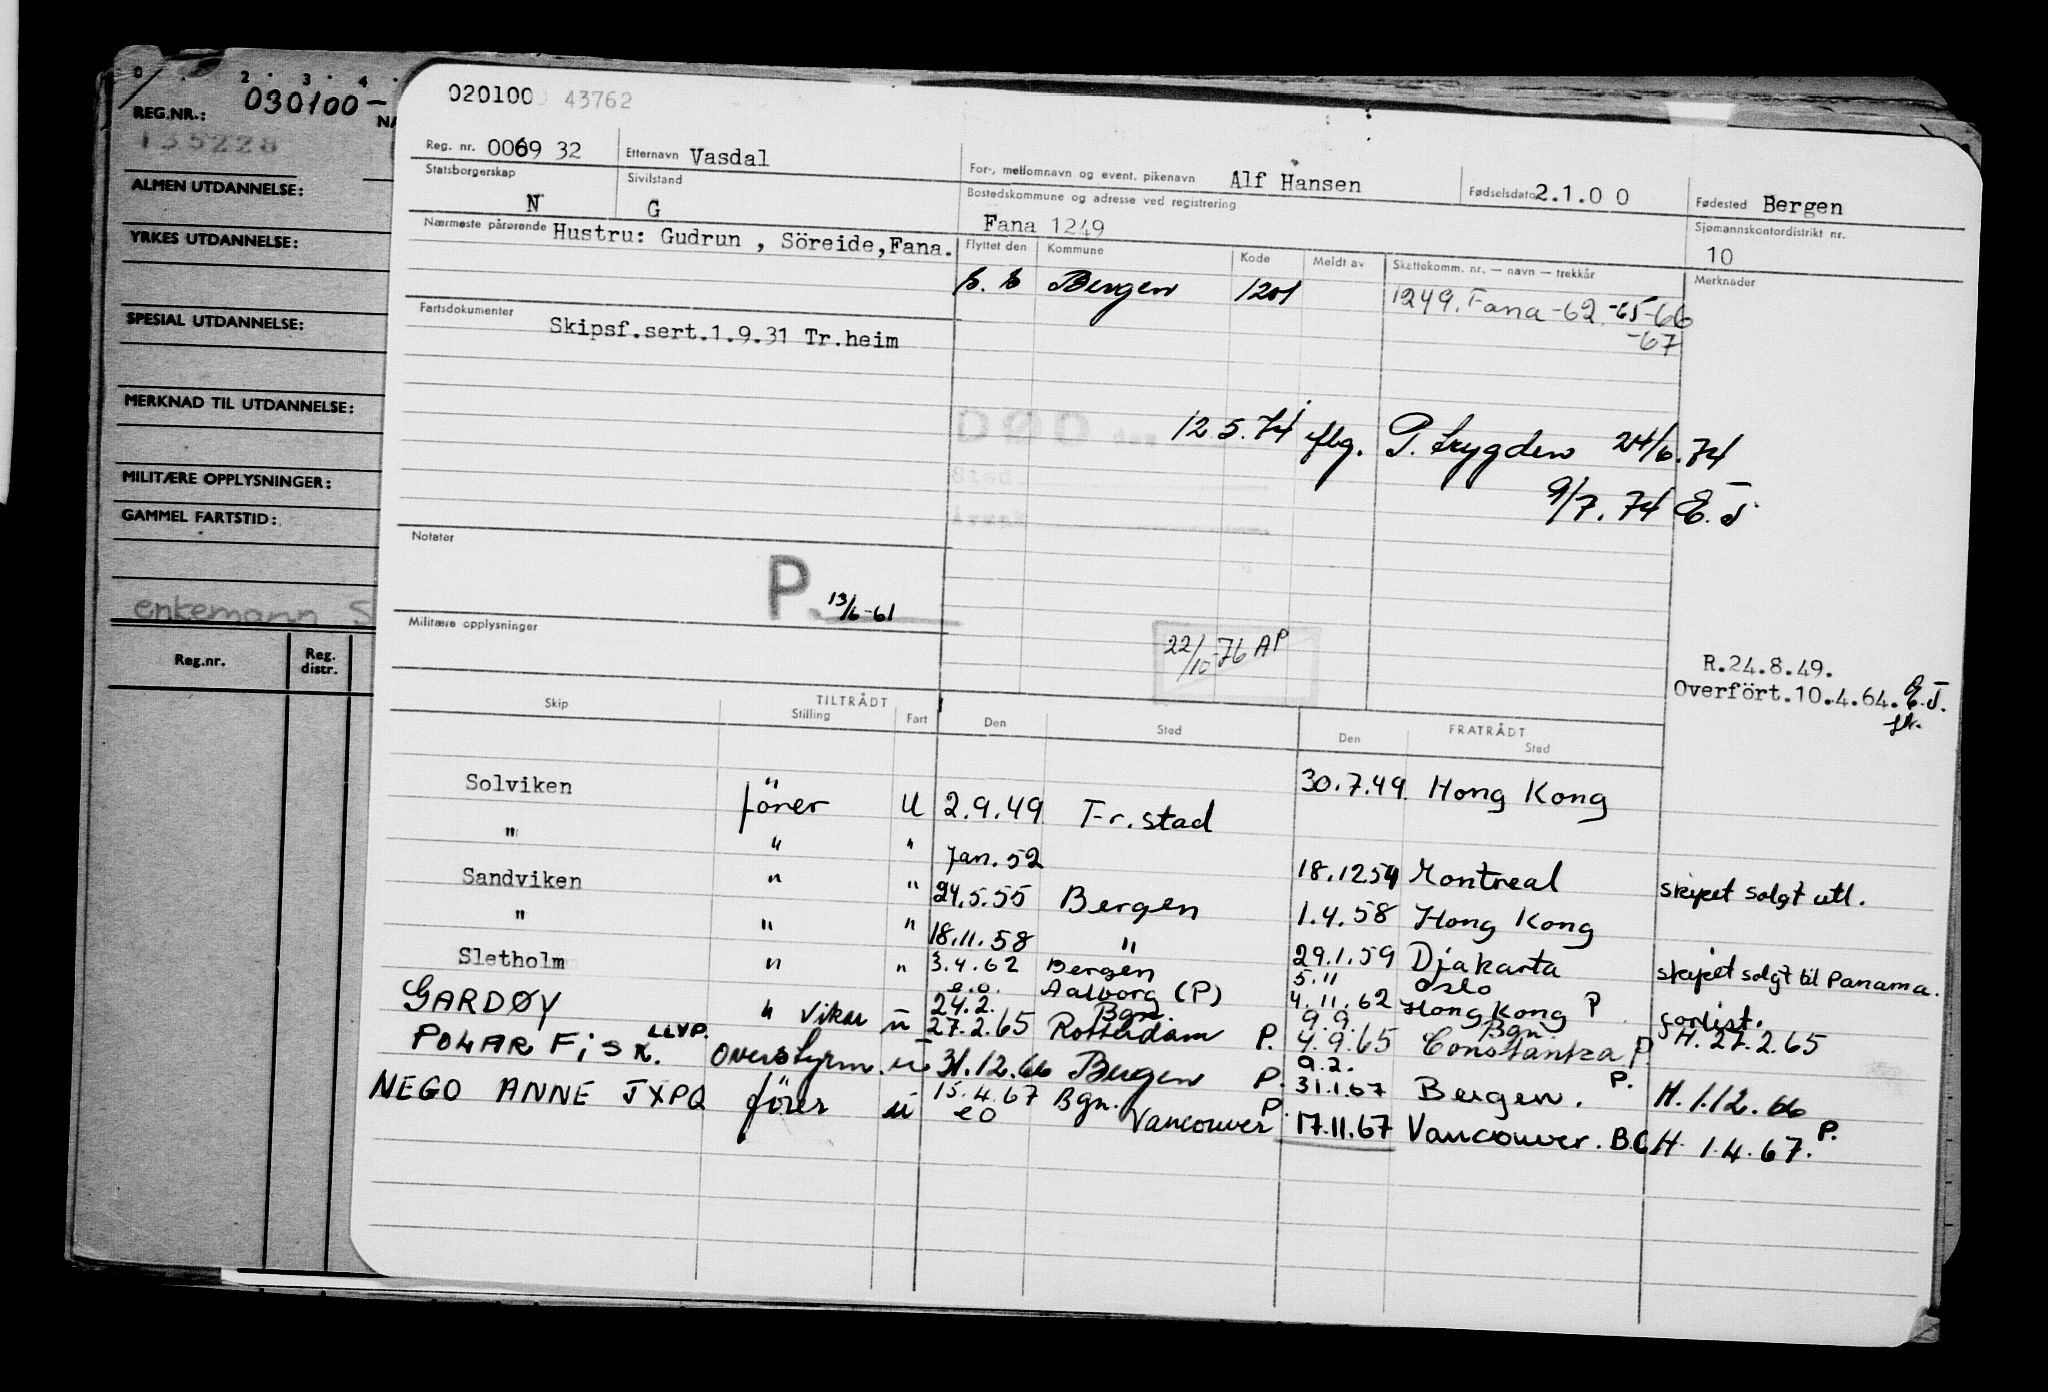 0 . 2 . 3 . 4 .
REG.NR.: 030100-
NA
135228
ALMEN UTDANNELSE:
YRKES UTDANNELSE:
SPESIAL UTDANNELSE:
MERKNAD TIL UTDANNELSE:
MILITÆRE OPPLYSNINGER:
GAMMEL FARTSTID:
enkemann S
Reg.nr. Reg. distr.
020100 43762
Reg. nr. 0069 32 Etternavn Vasdal For-, mellomnavn og event. pikenavn Alf Hansen Fødselsdato 2.1.0 0 Fødested Bergen
Statsborgerskap N Sivilstand G Bostedskommune og adresse ved registrering Fana 1249 Sjømannskontordistrikt nr. 10
Nærmeste pårørende Hustru: Gudrun , Söreide,Fana. Flyttet den Kommune Kode Meldt av Skattekomm. nr. — navn — trekkår Merknader
Bergen 1201 1249. Fana -62.-65-66
-67
Fartsdokumenter Skipsf.sert.1.9.31 Tr.heim
DØD den 12 5.74 flg. P. trygden 24/6.74
Sted
Årsak
9/7.74 E.J
Notater
P. 13/6-61
Militære opplysninger
22/10-76 AP
R.24.8.49.
Overfört.10.4.64. E.J.
Skip TILTRÅDT Stilling Fart Den Sted FRATRÅDT Den Sted
" 30.7.49. Hong Kong
Solviken förer U 2.9.49 Fr.stad
" " " Jan. 52 18.12.54 Montreal skipet solgt utl.
Sandviken " " 24.5.55 Bergen 1.4.58 Hong Kong
" " " 18.11.58 " 29.1.59 Djakarta skipet solgt til Panama.
Sletholm " " 3.4.62 Bergen 5.11 Oslo
e.o. Aalborg (P) 4.11.62 Hong Kong P forlist.
GARDØY " Vikar u 24.2. Bgn. 9.9. Bgn.
27.2.65 Rotterdam P. 4.9.65 Constantza P H. 27.2.65
POLAR FISK. LLVP. Overstyrm. u 31.12.66 Bergen P. 9.2.
31.1.67 Bergen. P. H. 1.12.66
NEGO ANNE JXPQ förer u 15.4.67 Bgn.
eo Vancouver P 17.11.67 Vancouver. B.C H. 1.4.67. P.